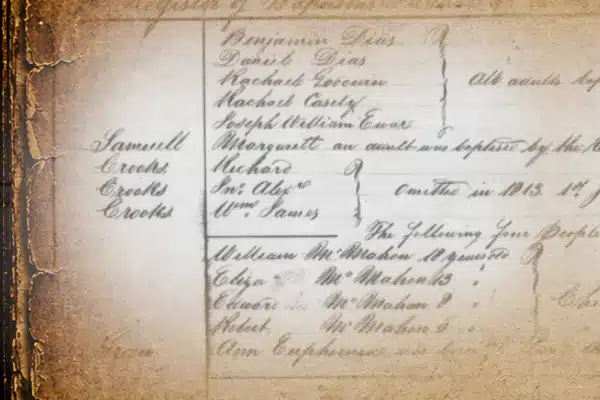 Register of Baptisms
Benjamin Dias
Daniel Dias
Rachael Goodwin All adults bap
Rachael Casely
Joseph William Ewar
Samuell Margarett an adult was baptised by the R
Crooks Richard
Crooks Jno. Alexr Omitted in 1813. 1st J
Crooks Wm. James
The following four People
William McMahon 18 years old
Eliza McMahon 13 "
Edward McMahon 8 "
Robert McMahon 6 "
Ann Euphemia was